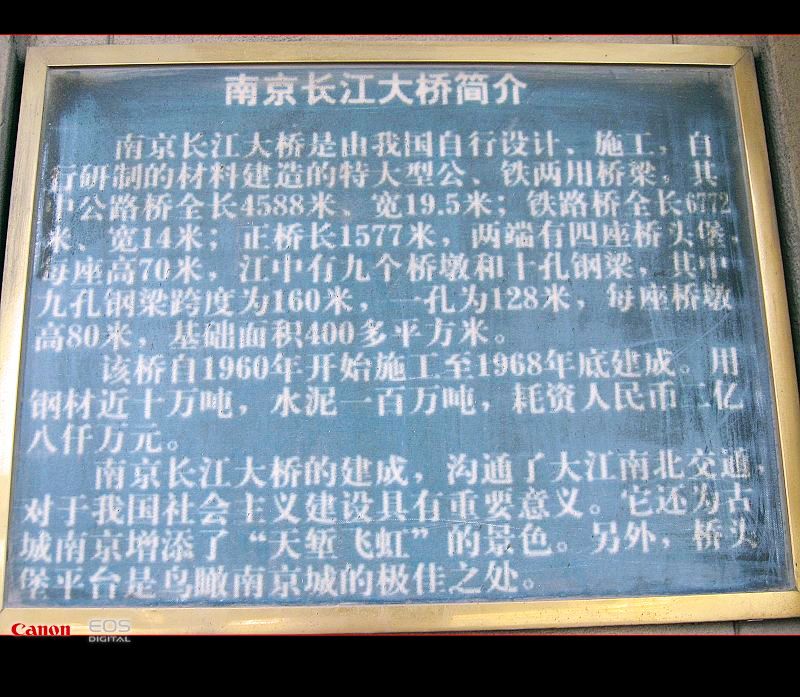 南京长江大桥简介
南京长江大桥是由我国自行设计、施工，自
行研制的材料建造的特大型公、铁两用桥梁，其
中公路桥全长4588米、宽19.5米；铁路桥全长6772
米、宽14米；正桥长1577米，两端有四座桥头堡，
每座高70米，江中有九个桥墩和十孔钢梁，其中
九孔钢梁跨度为160米，一孔为128米，每座桥墩
高80米，基础面积400多平方米。
该桥自1960年开始施工至1968年底建成。用
钢材近十万吨，水泥一百万吨，耗资人民币二亿
八仟万元。
南京长江大桥的建成，沟通了大江南北交通，
对于我国社会主义建设具有重要意义。它还为古
城南京增添了“天堑飞虹”的景色。另外，桥头
堡平台是鸟瞰南京城的极佳之处。
Canon EOS
DIGITAL